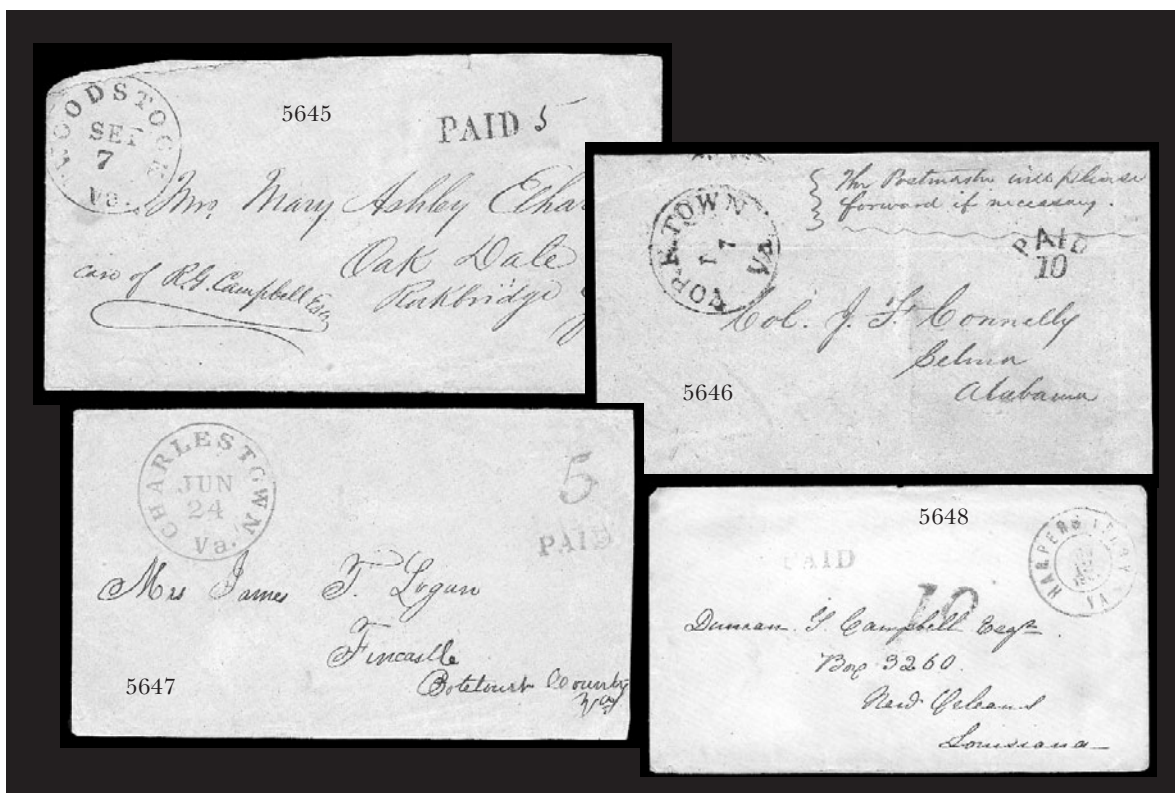 5645
WOODSTOCK
SEP
7
Va.
PAID 5
Mrs Mary Ashby
Oak Dale
care of R.G. Campbell Esq.
Rockbridge
The Postmaster will please
forward if necessary.
YORKTOWN
7
VA
PAID
10
Col. J. F. Connelly
Selma
Alabama
5646
CHARLESTOWN
JUN
24
Va.
5
PAID
Mrs James T. Logan
Fincastle
Botetourt County
Va
5647
5648
HARPERS FERRY
VA
PAID
10
Duncan G. Campbell Esqr
Box 3260.
New Orleans
Louisiana